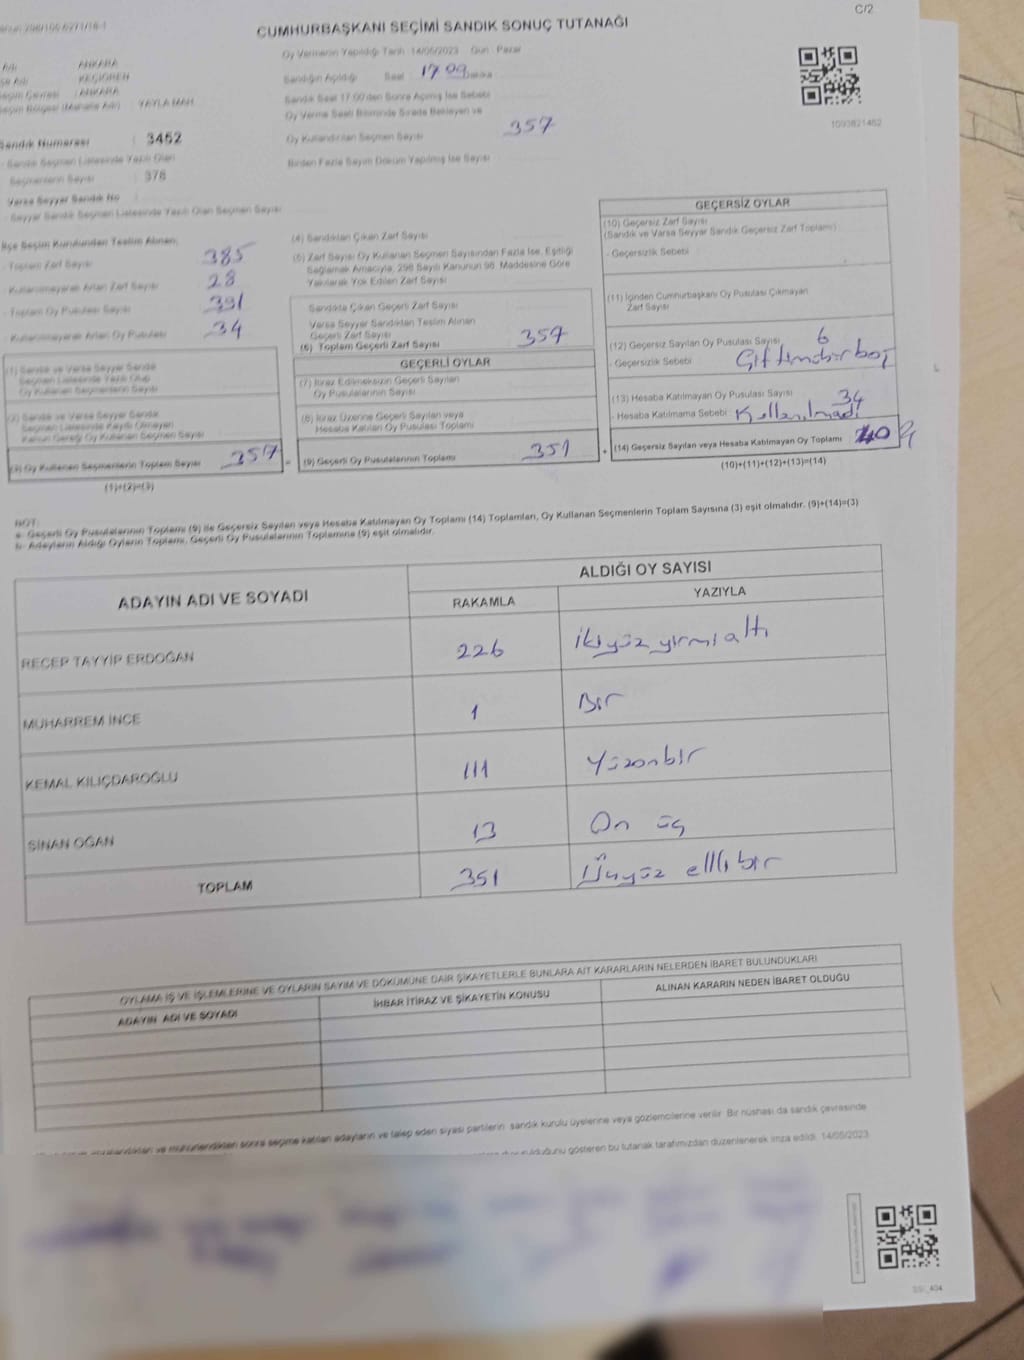 C/2
CUMHURBAŞKANI SEÇİMİ SANDIK SONUÇ TUTANAĞI
Oy Vermenin Yapıldığı Tarih 14/05/2023 Gün : Pazar
ANKARA
KEÇİÖREN
: ANKARA
Seçim Bölgesi (Mahalle Adı) : YAYLA MAH.
Sandığın Açıldığı Saat 17 00 Dakika
Sandık Saat 17.00'den Sonra Açılmış İse Sebebi
Oy Verme Saati Bitiminde Sırada Bekleyen ve
Oy Kullandırılan Seçmen Sayısı 357
Birden Fazla Sayım Döküm Yapılmış İse Sayısı
1093821452
Sandık Numarası : 3452
- Sandık Seçmen Listesinde Yazılı Olan
Seçmenlerin Sayısı : 378
Varsa Seyyar Sandık No
- Seyyar Sandık Seçmen Listesinde Yazılı Olan Seçmen Sayısı
İlçe Seçim Kurulundan Teslim Alınan;
- Toplam Zarf Sayısı 385
- Kullanılmayarak Artan Zarf Sayısı 28
- Toplam Oy Pusulası Sayısı 391
- Kullanılmayarak Artan Oy Pusulası 34
(1) Sandık ve Varsa Seyyar Sandık
Seçmen Listesinde Yazılı Olup
Oy Kullanan Seçmenlerin Sayısı
(2) Sandık ve Varsa Seyyar Sandık
Seçmen Listesinde Kayıtlı Olmayan
Kanun Gereği Oy Kullanan Seçmen Sayısı
(3) Oy Kullanan Seçmenlerin Toplam Sayısı 357 =
(1)+(2)=(3)
(4) Sandıktan Çıkan Zarf Sayısı
(5) Zarf Sayısı Oy Kullanan Seçmen Sayısından Fazla İse, Eşitliği
Sağlamak Amacıyla, 298 Sayılı Kanunun 98. Maddesine Göre
Yakılarak Yok Edilen Zarf Sayısı
Sandıkta Çıkan Geçerli Zarf Sayısı
Varsa Seyyar Sandıktan Teslim Alınan
Geçerli Zarf Sayısı
(6) Toplam Geçerli Zarf Sayısı 357
GEÇERLİ OYLAR
(7) İtiraz Edilmeksizin Geçerli Sayılan
Oy Pusulalarının Sayısı
(8) İtiraz Üzerine Geçerli Sayılan veya
Hesaba Katılan Oy Pusulası Toplamı
(9) Geçerli Oy Pusulalarının Toplamı 351 +
GEÇERSİZ OYLAR
(10) Geçersiz Zarf Sayısı
(Sandık ve Varsa Seyyar Sandık Geçersiz Zarf Toplamı)
- Geçersizlik Sebebi
(11) İçinden Cumhurbaşkanı Oy Pusulası Çıkmayan
Zarf Sayısı
(12) Geçersiz Sayılan Oy Pusulası Sayısı 6
- Geçersizlik Sebebi
(13) Hesaba Katılmayan Oy Pusulası Sayısı 34
- Hesaba Katılmama Sebebi Kullanılmadı
(14) Geçersiz Sayılan veya Hesaba Katılmayan Oy Toplamı 40
(10)+(11)+(12)+(13)=(14)
NOT:
a- Geçerli Oy Pusulalarının Toplamı (9) ile Geçersiz Sayılan veya Hesaba Katılmayan Oy Toplamı (14) Toplamları, Oy Kullanan Seçmenlerin Toplam Sayısına (3) eşit olmalıdır. (9)+(14)=(3)
b- Adayların Aldığı Oyların Toplamı, Geçerli Oy Pusulalarının Toplamına (9) eşit olmalıdır.
ADAYIN ADI VE SOYADI
ALDIĞI OY SAYISI
RAKAMLA YAZIYLA
RECEP TAYYİP ERDOĞAN 226 ikiyüz yirmi altı
MUHARREM İNCE 1 Bir
KEMAL KILIÇDAROĞLU 111 Yüzonbir
SİNAN OĞAN 13 On üç
TOPLAM 351 Üçyüz ellibir
OYLAMA İŞ VE İŞLEMLERİNE VE OYLARIN SAYIM VE DÖKÜMÜNE DAİR ŞİKAYETLERLE BUNLARA AİT KARARLARIN NELERDEN İBARET BULUNDUKLARI
ADAYIN ADI VE SOYADI İHBAR İTİRAZ VE ŞİKAYETİN KONUSU ALINAN KARARIN NEDEN İBARET OLDUĞU
ve mühürlendikten sonra seçime katılan adayların ve talep eden siyasi partilerin sandık kurulu üyelerine veya gözlemcilerine verilir. Bir nüshası da sandık çevresinde
gösteren bu tutanak tarafımızdan düzenlenerek imza edildi. 14/05/2023